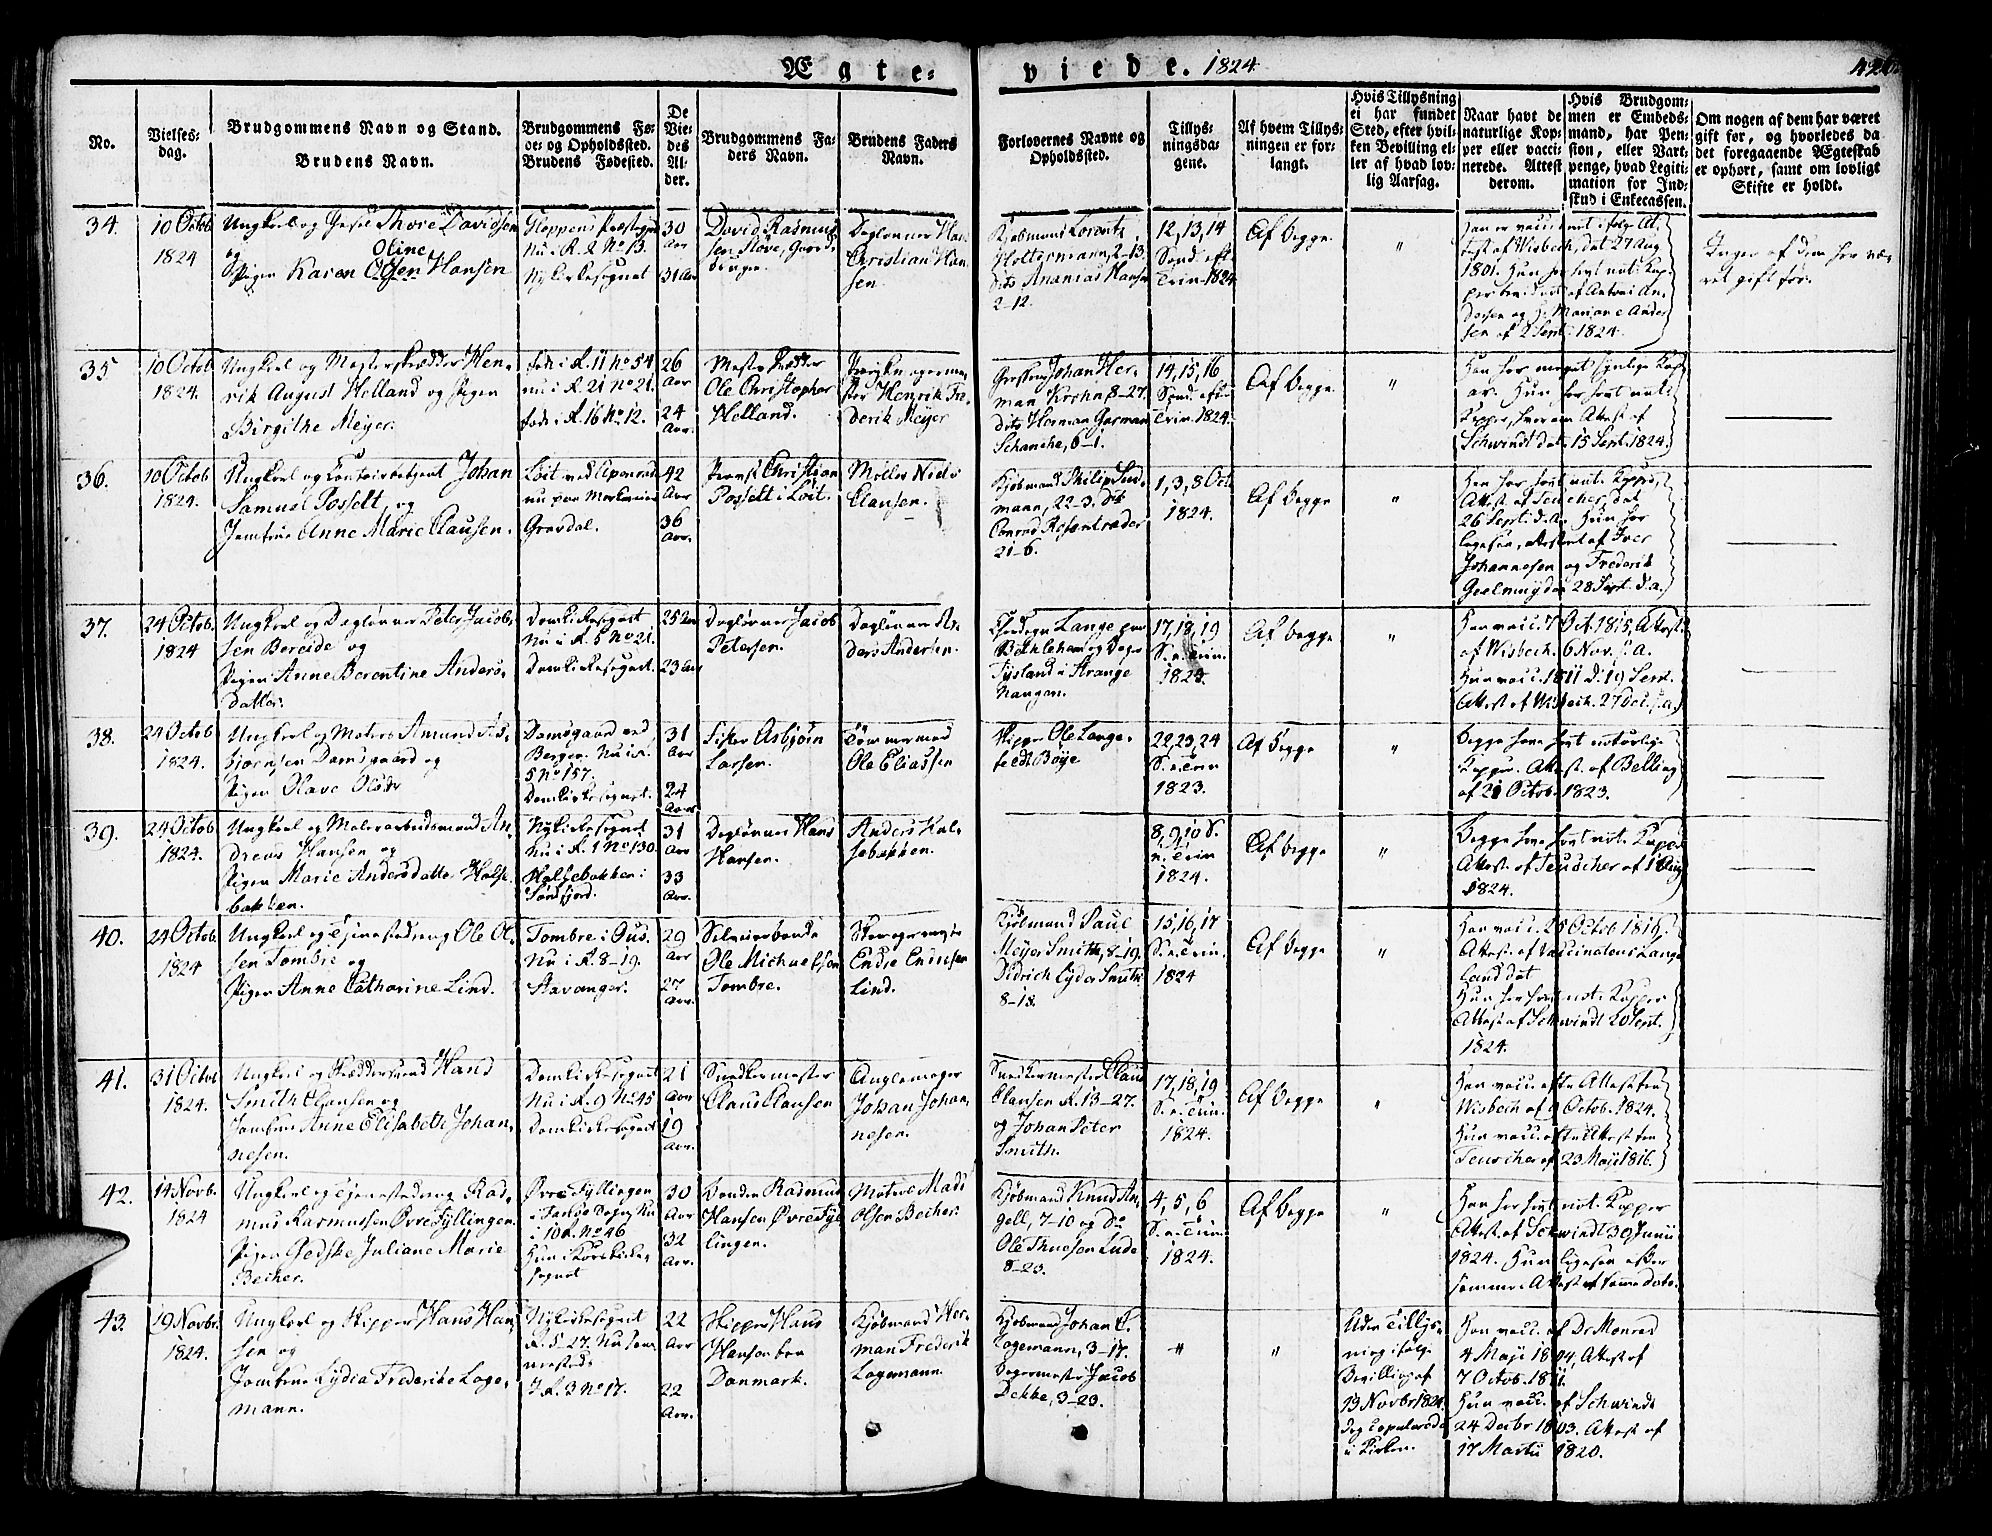 Ægte-
viede. 1824
420
No.
Vielses-
dag.
Brudgommens Navn og Stand.
Brudens Navn.
Brudgommens Fø-
de- og Opholdssted.
Brudens Fødested.
De
Vie-
des
Al-
der.
Brudgommens Fa-
ders Navn.
Brudens Faders
Navn.
Forlovernes Navne og
Opholdssted.
Tillys-
ningsda-
gene.
Af hvem Tillys-
ningen er for-
langt.
Hvis Tillysning
ei har fundet
Sted, efter hvil-
ken Bevilling el-
ler af hvad lov-
lig Aarsag.
Naar havt de
naturlige Kop-
per eller vacci-
nerede. Attest
derom.
Hvis Brudgom-
men er Embeds-
mand, har Pen-
sion, eller Vart-
penge, hvad Legiti-
mation for Ind-
skud i Enkecassen.
Om nogen af dem har været
gift før, og hvorledes da
det foregaaende Ægteskab
er ophørt, samt om lovligt
Skifte er holdt.
34.
10 Octob
1824
Ungkarl og Thore Davidsen
og Oline
Pigen Karen Olsen Hansen
Gloppens Præstegj
Nu i R. 2 No 13.
Nykirkesognet
30
Aar
31 Aar
David Rasmus-
sen
Dagleonner Han
Christian Han-
sen.
Kjøbmand Lorents
Holtermann, 2-13.
dito Ananias Hansen
2-12.
12, 13, 14
Sønd. eft
Trin. 1824
Af begge.
"
Han er vacc net ifølge At-
test af Wisbech, dat 27 Aug
1801. Hun har havt nat: Kop-
per bevidnet af Antoni An-
dersen og J. Mariane Ander-
sen af 2 Sept. 1824.
Ingen af dem har væ-
ret gift før.
35
10 Octob
1824.
Ungkarl og Mesterskrædder Hen-
rik August Helland og Pigen
Birgithe Meyer.
føde i R. 11 No 54
nu i R. 21 No 21.
føde i R. 16 No 12.
26
Aar
24
Aar.
Mester Skrædder
Ole Christopher
Helland.
Henrik Fre-
derik Meyer
Johan Her-
man Krohn, 8-27.
dito Herman Garman
Schanche, 6-1.
14, 15, 16
Sønd. eft-
Trin. 1824.
Af begge.
"
Han har meget synlige Kop-
ar. Hun har havt nat:
Kopper, hvorom Attest af
Schwindt dat. 15 Sept. 1824.
36.
10 Octob
1824.
Ungkarl og Contoirbetjent Johan
Samuel Posselt og
Jomfrue Anne Marie Clausen.
Løit ved Apenrade
nu paa
Grevdal.
42
Aar
36
Aar.
Christian
Posselt i Løit.
Møller Niels
Clausen.
Kjøbmand Philip Lud-
mann, 22-3. dito
Conrad Rosentræder
21-6.
1, 3, 8 Oct
1824.
Af begge
"
Han har havt nat: Kopper,
Attest af Teuscher, dat
26 Sept. d. A. Hun har
ligesaa, attesteret af Iver
Johannesen og Frederik
Geelmuyden 28 Sept. d.a.
37.
24 Octob.
1824
Ungkarl og Dagleonner Peter Jacob-
sen Bereide og
Pigen Anne Berentine Anders-
datter.
Domkirkesognet
Nu i R. 5 No 21.
Domkirkesognet.
25 Aar
23 Aar
Dagleonner Jacob
Petersen.
Dagleonner An-
ders Andersen.
Lange paa
Bethlehem og
Tysland i Strange
hangen.
17, 18, 19
S. e. Trin.
1824.
Af begge
"
Han vacc. 7 Oct. 1815, Attest
af Wisbech. 6 Nov. s. a.
Hun vacc. 1811 d. 19 Sept.
Attest af Wisbech. 27 Oct. s.a.
38.
24 Octob
1824.
Ungkarl og Matros Amund As-
bjørnsen Damsgaard og
Pigen Olave Olsdr
Damsgaard ved
Bergen. Nu i R.
5 No 157.
Domkirkesognet.
31
Aar
24
Aar
Fisker Asbjørn
Larsen.
Tømmermand
Ole Eliassen
Skipper Ole Lange-
feldt Bøye
22, 23, 24
S. e. Trin
1823.
Af begge
"
Begge have havt naturlige
Kopper. Attest. af Belling
af 21 Octob. 1823.
39.
24 Octob
1824.
Ungkarl og Malerarbeidsmand An-
dreas Hansen og
Pigen Marie Andersdatter Halse-
bakken.
Nykirkesognet
Nu i R. 1 No 130
Halsebakken i
Søndfjord.
31
Aar
33
Aar.
Dagleonner Hans
Hansen.
Anders Hal-
sebakken.
8, 9, 10 S.
e. Trin
1824.
Af begge
"
Begge have havt nat. Kopper
Attest. af Teuscher af 1 Aug
1824.
40.
24 Octob.
1824
Ungkarl og Tjenestedreng Ole Ol-
sen Tombre og
Pigen Anne Catharine Lind.
Tombre i Ous.
Nu i R. 8-19.
Stavanger.
29
Aar
27
Aar.
Selveierbonde
Ole Michaelsen
Tombre.
Endre Eninsen
Lind.
Kjøbmand Paul
Meyer Smith, 8-19.
Didrich Eyder Smith
8-18.
15, 16, 17
S. e. Trin.
1824
Af begge
"
Han vacc. 25 Octob 1816,
Attest. af Vaccinateur Lange-
land dat
Hun har havt nat: Kopper
Attest af Schwindt 20 Sept.
1824.
41.
31 Octob
1824.
Ungkarl og Skræddersvend Hans
Smith Clausen og
Jomfrue Anne Elisabeth Johan-
nesen.
Domkirkesognet
Nu i R. 9 No 45
Domkirkesognet
21
Aar
19
Aar.
Snedkermester
Claus Clausen
Anglemager
Johan Johan-
nesen.
Snedkermester Claus
Clausen R. 13-27.
og Johan Peter
Smith.
17, 18, 19
S. e. Trin.
1824.
Af begge
"
Han vacc. efter Attest fra
Wisbech af 9 Octob. 1824.
Hun vacc. efter Attest fra
Teuscher af 23 Maji 1816.
42.
14 Novb.
1824
Ungkarl og Tjenestedreng Ras-
mus Rasmussen Øvre Fyllingen
Pigen Godske Juliane Marie
Becher.
Øvre Fyllingen
i Fanøe Sogn, Nu
i 10 R. No 46
Hun i Korskirke-
sognet
30
Aar
32
Aar.
Bonden Rasmus
Hansen Øvre Fyl-
lingen.
Matros Mads
Olsen Becher.
Kjøbmand Knud An-
gell, 7-10 og Do
Ole Thuesen Lude
8-23.
4, 5, 6
S. e. Trin.
1824.
Af begge
"
Han har havt nat. Kopper
Attest. af Schwindt 30 Junii
1824. Hun ligesaa efter
samme Attest af samme dato.
43.
19 Novbr.
1824.
Ungkarl og Skipper Hans Han-
sen og
Jomfrue Lydia Frederikke Lage-
mann.
Nykirkesognet
R. 5-27. Nu sam-
mesteds
I R. 3 No 17.
22
Aar
22
Aar.
Skipper Hans
Hansen fra
Danmark.
Kjøbmand Her-
man Frederik
Lagemann.
Kjøbmand Johan C.
Lagemann, 3-17.
Bagermester Jacob
Dekke, 3-23.
"
"
Uden Tillys-
ning ifølge
Bevilling af
13 Novbr 1824.
dog copulerede
i Kirken.
Han vacc. af Dr Monrad
4 Maji 1804, Attest af
7 Octob. 1811.
Hun vacc. af Schwindt
24 Decbr 1803. Attest af
17 Martii 1820.